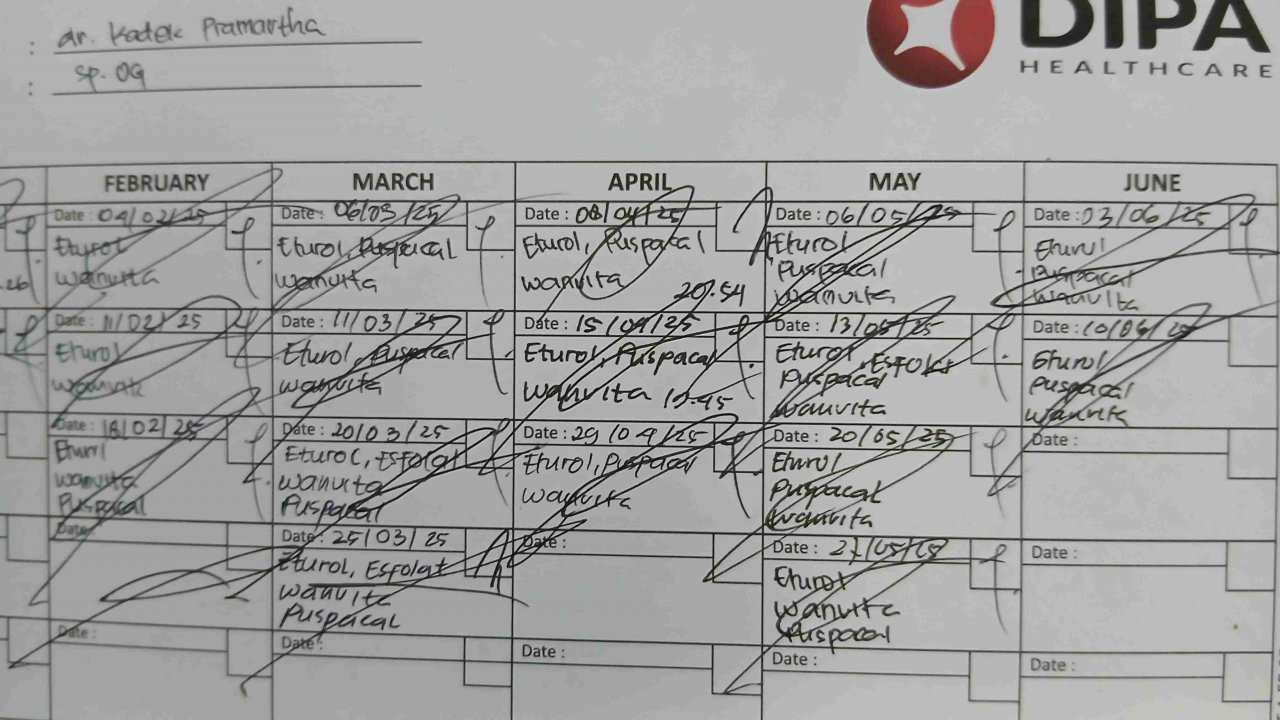 : dr. Kadek Pramartha
: Sp. OG
DIPA
HEALTHCARE
FEBRUARY
MARCH
APRIL
MAY
JUNE
Date : 04/02/25
Eturol
Wanvita
Date : 11/02/25
Eturol
Date : 18/02/25
Eturol
Wanvita
Puspacal
Date :
Date :
Date : 06/03/25
Eturol, Puspacal
Wanvita
Date : 11/03/25
Eturol, Puspacal
Wanvita
Date : 20/03/25
Eturol, Esfolat
Wanvita
Puspacal
Date : 25/03/25
Eturol, Esfolat
Wanvita
Puspacal
Date :
Date : 08/04/25
Eturol, Puspacal
Wanvita
20.54
Date : 15/04/25
Eturol, Puspacal
Wanvita
Date : 29/04/25
Eturol, Puspacal
Wanvita
Date :
Date :
Date : 06/05/25
Eturol
Puspacal
Wanvita
Date : 13/05/25
Eturol, Esfolat
Puspacal
Wanvita
Date : 20/05/25
Eturol
Puspacal
Wanvita
Date : 27/05/25
Eturol
Wanvita
Puspacal
Date :
Date : 03/06/25
Eturol
Puspacal
Wanvita
Date : 10/06/25
Eturol
Puspacal
Wanvita
Date :
Date :
Date :